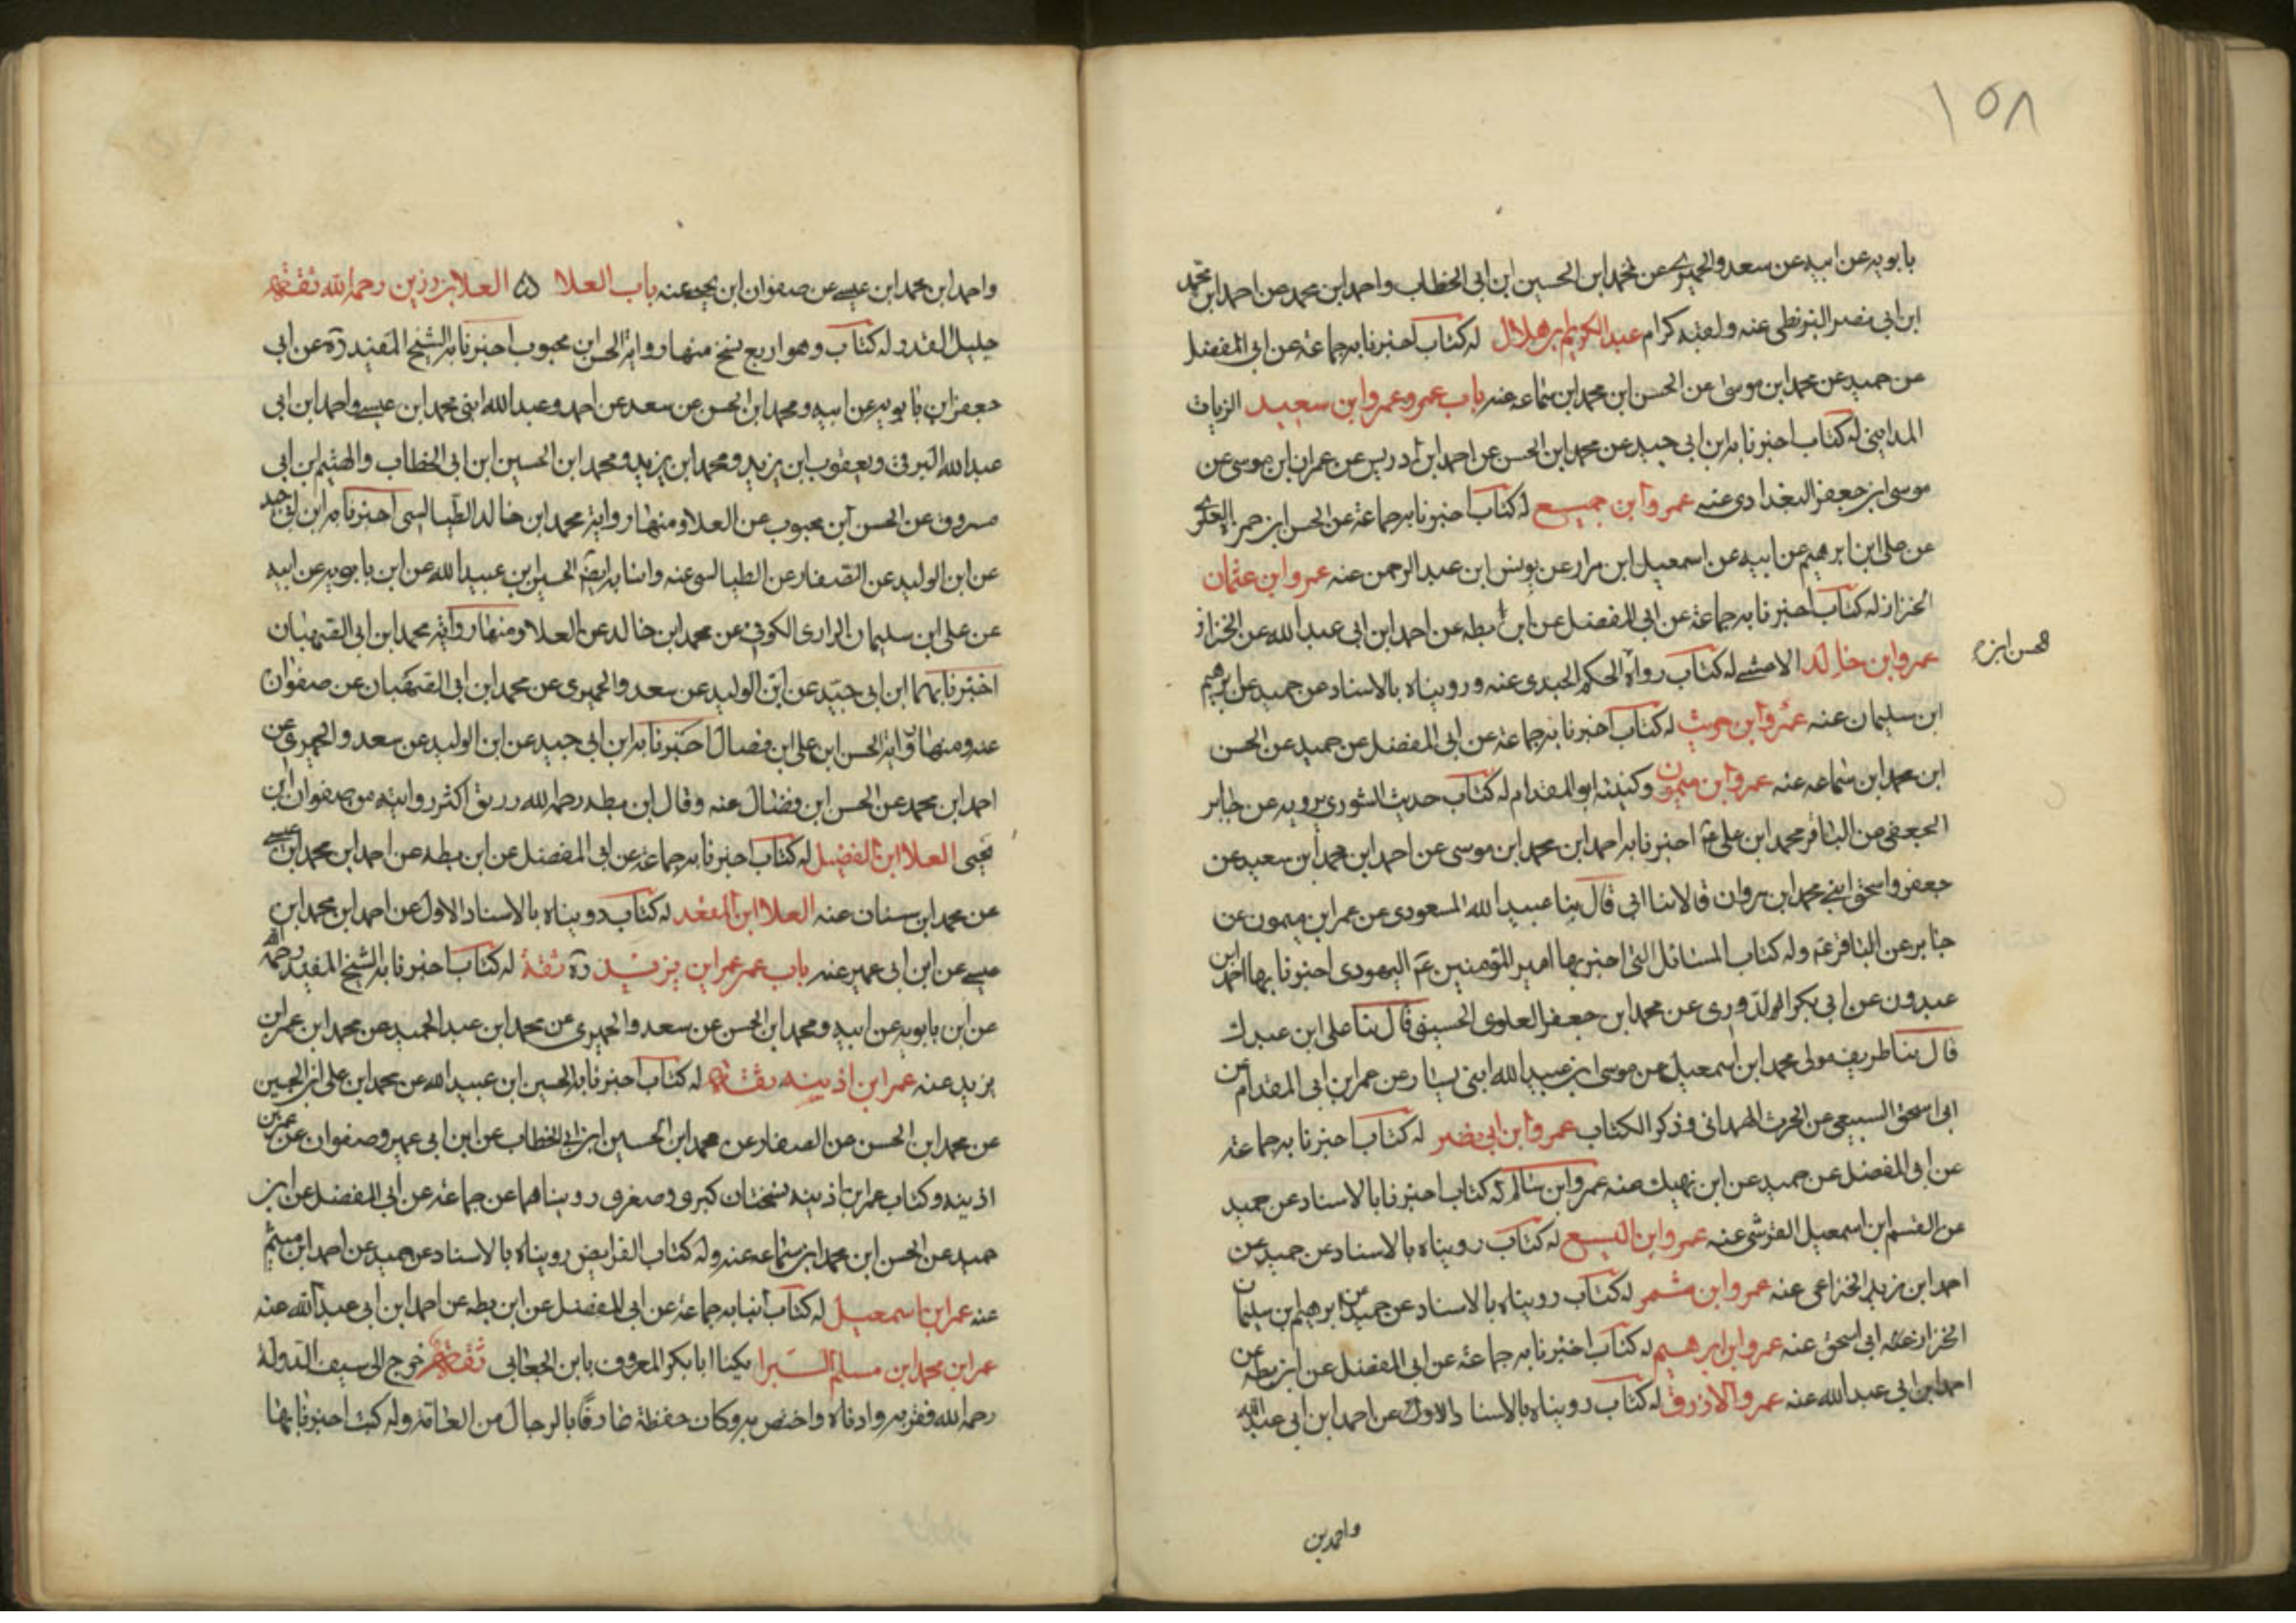 ١٥٨
بابويه عن ابيه عن سعد والحميري عن محمد ابن الحسين ابن ابى الخطاب واحمد ابن محمد عن احمد ابن محمد
ابن ابى نصر البزنطى عنه ولقبه كرام عبد الكريم ابن هلال له كتاب اخبرنا به جماعة عن ابى المفضل
عن حميد عن محمد ابن موسى عن الحسن ابن محمد ابن سماعه عنه باب عمرو عمرو ابن سعيد الزيات
المداينى له كتاب اخبرنا به ابن ابى جيد عن محمد ابن الحسن عن احمد ابن ادريس عن عمران ابن موسى عن
موسى ابن جعفر البغدادى عنه عمرو ابن جميع له كتاب اخبرنا به جماعة عن الحسن ابن حمزة العلوى
عن على ابن ابرهيم عن ابيه عن اسمعيل ابن مرار عن يونس ابن عبد الرحمن عنه عمرو ابن عثمان
الخزاز له كتاب اخبرنا به جماعة عن ابى المفضل عن ابن بطه عن احمد ابن ابى عبد الله عن الخزاز
عمرو ابن خالد له كتاب رواه الحكم عنه ورويناه بالاسناد عن حميد عن ابرهيم
ابن سليمان عنه عمرو ابن حريث له كتاب اخبرنا به جماعة عن ابى المفضل عن حميد عن الحسن
ابن محمد ابن سماعه عنه عمرو ابن ميمون وكنيته ابو المقدام له كتاب حديث الشورى يرويه عن جابر
الجعفى عن الباقر محمد ابن على ع اخبرنا به احمد ابن محمد ابن موسى عن احمد ابن محمد ابن سعيد عن
جعفر واسحق ابنى محمد ابن مروان قالا نا ابى قال نا عبيد الله المسعودى عن عمر ابن ميمون عن
جابر عن الباقر عم وله كتاب المسائل التى اخبر بها امير المؤمنين عم اليهودى اخبرنا بها احمد ابن
عبدون عن ابى بكر الدورى عن محمد ابن جعفر العلوى الحسينى قال نا على ابن عبدك
قال نا طريف مولى محمد ابن اسمعيل عن موسى ابن عبيد الله ابنى يسار عن عمر ابن ابى المقدام عن
ابى اسحق السبيعى عن الحرث الهمدانى وذكر الكتاب عمرو ابن ابى نصر له كتاب اخبرنا به جماعة
عن ابى المفضل عن حميد عن ابن نهيك عنه عمرو ابن سالم له كتاب اخبرنا بالاسناد عن حميد
عن القسم ابن اسمعيل القرشى عنه عمرو ابن اليسع له كتاب رويناه بالاسناد عن حميد عن
احمد ابن زيد الخزاعى عنه عمرو ابن شمر له كتاب رويناه بالاسناد عن حميد عن ابرهيم ابن سليمان
الخزاز ابى اسحق عنه عمرو ابن ابرهيم له كتاب اخبرنا به جماعة عن ابى المفضل عن ابن بطه عن
احمد ابن ابى عبد الله عنه عمرو الازرق له كتاب رويناه بالاسناد الاول عن احمد ابن ابى عبد الله
واحمد بن
واحمد ابن محمد ابن عيسى عن صفوان ابن يحيى عنه باب العلا العلا ابن رزين رحمه الله ثقة
جليل القدر له كتاب وهو اربع نسخ منها رواية الحسن ابن محبوب اخبرنا به الشيخ المفيد ره عن ابى
جعفر ابن بابويه عن ابيه ومحمد ابن الحسن عن سعد عن احمد وعبد الله ابنى محمد ابن عيسى واحمد ابن ابى
عبد الله البرقى ويعقوب ابن يزيد ومحمد ابن يزيد ومحمد ابن الحسين ابن ابى الخطاب والهيثم ابن ابى
مسروق عن الحسن ابن محبوب عن العلا ومنها رواية محمد ابن خالد الطيالسى اخبرنا به ابن ابى جيد
عن ابن الوليد عن الصفار عن الطيالسى عنه وانا به ايضا الحسين ابن عبيد الله عن ابن بابويه عن ابيه
عن على ابن سليمان الزرارى الكوفى عن محمد ابن خالد عن العلا ومنها رواية محمد ابن ابى القهبان
اخبرنا بهما ابن ابى جيد عن ابن الوليد عن سعد والحميرى عن محمد ابن ابى القهبان عن صفوان
عنه ومنها رواية الحسن ابن على ابن فضال اخبرنا به ابن ابى جيد عن ابن الوليد عن سعد والحميرى عن
احمد ابن محمد عن الحسن ابن فضال عنه وقال ابن بطه رحمه الله رزيق اكثر رواية من صفوان ابن
يحيى العلا ابن الفضيل له كتاب اخبرنا به جماعة عن ابى المفضل عن ابن بطه عن احمد ابن محمد ابن عيسى
عن محمد ابن سنان عنه العلا ابن المقعد له كتاب رويناه بالاسناد الاول عن احمد ابن محمد ابن
عيسى عن ابن ابى عمير عنه باب عمر عمر ابن يزيد ره ثقة له كتاب اخبرنا به الشيخ المفيد رحمه الله
عن ابن بابويه عن ابيه ومحمد ابن الحسن عن سعد والحميرى عن محمد ابن عبد الحميد عن محمد ابن عمر ابن
يزيد عنه عمر ابن اذينه ثقة له كتاب اخبرنا به الحسين ابن عبيد الله عن محمد ابن على ابن الحسين
عن محمد ابن الحسن عن الصفار عن محمد ابن الحسين ابن ابى الخطاب عن ابن ابى عمير وصفوان عن عمر ابن
اذينه وكتاب عمر ابن اذينه نسختان كبرى وصغرى رويناهما عن جماعة عن ابى المفضل عن ابن
حميد عن الحسن ابن محمد ابن سماعه عنه وله كتاب الفرايض رويناه بالاسناد عن حميد عن احمد ابن ميثم
عنه عمر ابن اسمعيل له كتاب انبا به جماعة عن ابى المفضل عن ابن بطه عن احمد ابن ابى عبد الله عنه
عمر ابن محمد ابن مسلم البرا يكنا ابا بكر المعروف بابن الجعابى ثقة خرج الى سيف الدولة
رحمه الله فقربه وادناه واختص به وكان حفظة عارفا بالرجال من العامة وله كتب اخبرنا بها